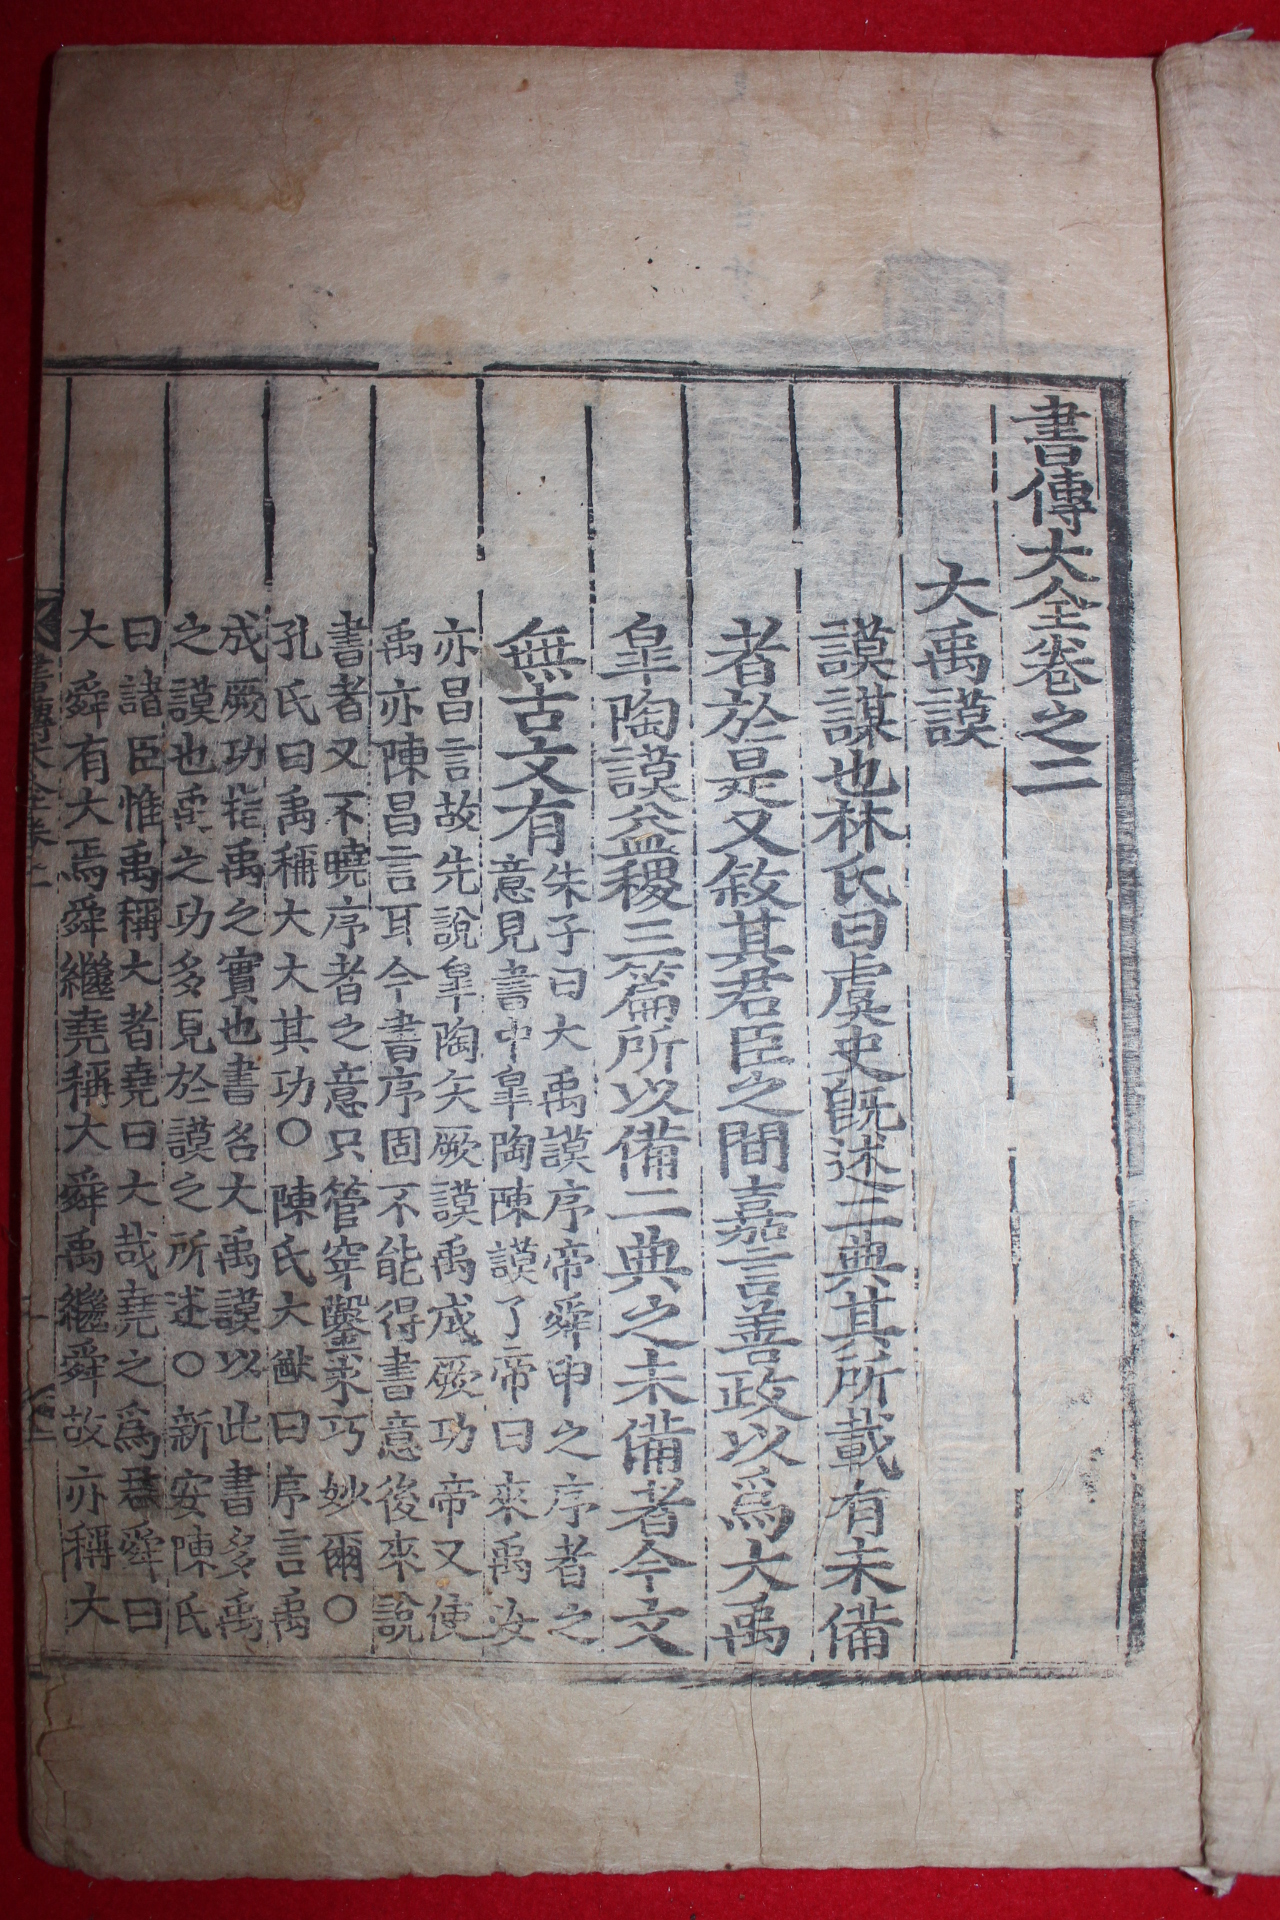 書傳大全卷之二
大禹謨
謨謀也林氏曰虞史旣述二典其所載有未備
者於是又敘其君臣之間嘉言善政以爲大禹
皐陶謨益稷三篇所以備二典之未備者今文
無古文有
朱子曰大禹謨序帝舜申之序者之
意見書中皐陶陳謨了帝曰來禹汝
亦昌言故先說皐陶矢厥謨禹成厥功帝又使
禹亦陳昌言耳今書序固不能得書意後來說
書者又不曉序者之意只管穿鑿求巧妙爾○
孔氏曰禹稱大大其功○陳氏大猷曰序言禹
成厥功指禹之實也書名大禹謨以此書多禹
之謨也禹之功多見於謨之所述○新安陳氏
曰諸臣惟禹稱大者堯曰大哉堯之爲君舜曰
大舜有大焉舜繼堯稱大舜禹繼舜故亦稱大
書傳大全卷二